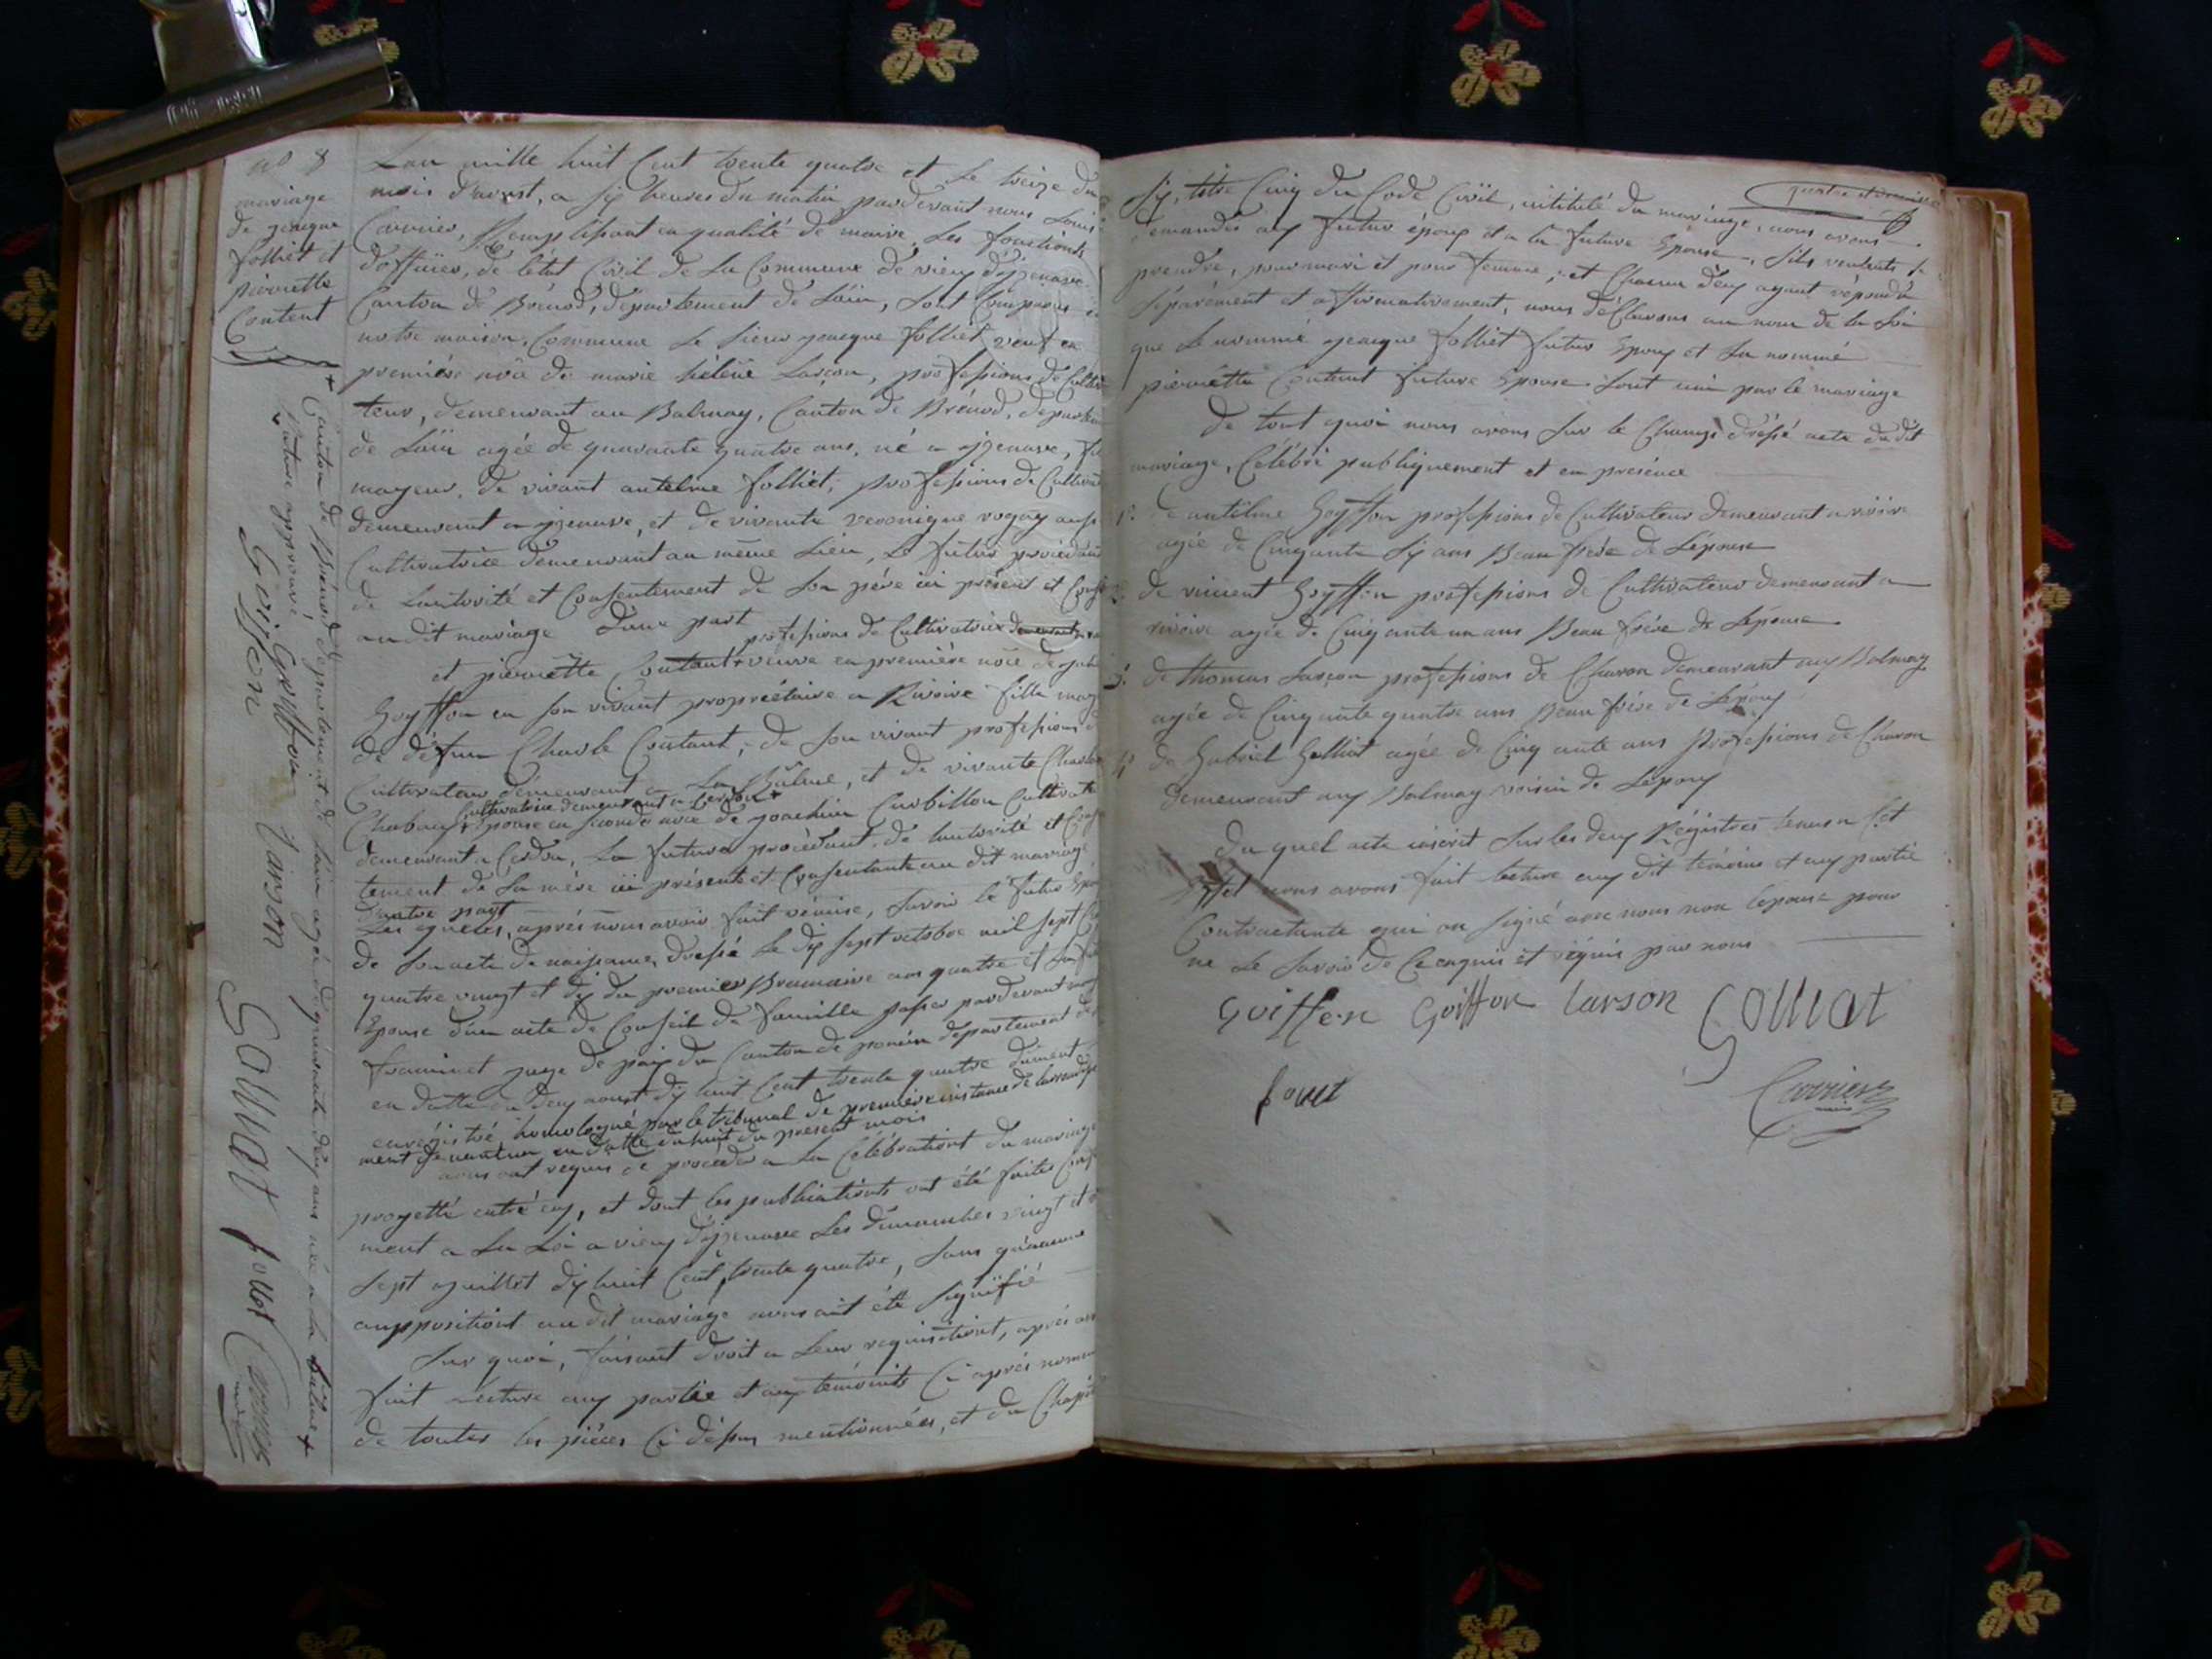 no 8
mariage
de jacque
folliet et
pierrette
Content
Lan mille huit Cent trente quatre et le treize du
mois d'aoust, a six heures du matin pardevant nous Louis
Carrier, Remplissant en qualité de maire, Les fonctions
d'offisier, de létat Civil de la Commune de vieux d'izenave
Canton de Brénod, département de Lain, sont Comparus
notre maison Commune Le sieur jacque folliet veuf en
première noce de marie hélène Larçon, professions de Cultiva
teur, demeurant au Balmay, Canton de Brénod, départem
de Lain agée de quarante quatre ans, né a izenave, fil
mayeur, de vivant antelme folliet, professions de Cultivat
demeurant a izenave, et de vivante veronique aussi
Cultivatrice demeurant au même Lieu, Le futur procédant
de Lautorité et Consentement de son père ici présent et Cons
au dit mariage d'une part
professions de Cultivatrice demeurant
et pierrette Coutant + veuve en première noce de
Goyffon en son vivant propriétaire a Rivoire fille may
de défun Charle Coutant, de son vivant professions
Cultivateur demeurant a La Balme, et de vivante
Cultivatrice demeurant a Cerdon +
Epouse en seconde noce de joachim Curbillon Cultivat
demeurant a Cerdon, La future procédant de Lautorité et Cons
tement de sa mère ici présente et Consentante au dit mariage
D'autre part
Les quels, après nous avoir fait remise, savoir le futur Epou
de son acte de naissance, dressé Le dix sept octobre mil sept Cen
quatre vingt et dix du premier Brumaire an quatre et
Epouse d'un acte de Conseil de famille passer pardevant
juge de paix du Canton de poncin département de
en datte du deux aoust dix huit Cent trente quatre dûment
enrégistré, homologué par le tribunal de première instance de
ment de nantua en datte du huit du présent mois
nous ont requis de procéder a La Célébrationt du mariage
progetté entré eux, et dont les publicationts ont été faites
ment a La Loi a vieux d'izenave Les dimanches vingt et
sept juillet dix huit Cent trente quatre, sans qu'aucune
auppositiont au dit mariage nous ait été signifié
Sur quoi, faisant droit a Leur requisitiont, après
fait lecture aux partie et aux témoints Ci après nomm
de toutes les pièces Ci dessus mentionnées, et du Chapit
+ Canton de Brénod, département de Lain agée de quarante deux ans née a La Balme +
Rature approuvé
Goiffon Goiffon Larson Golliat follet Carrier
maire
Six, titre Cinq du Code Civil, intitulé du mariage, nous avons
demandés aux futur époux et a la future Epouse, sils veulents se
prendre, pour mari et pour femme, et Chacun d'eux ayant répondu
séparément et affirmativement, nous déclarons au nom de la Loi
que Le nommé jacque folliet futur Epoux et La nommé
pierrette Contant future Epouse sont uni par le mariage
De tout quoi nous avons sur le Champ dréssé acte du dit
mariage, Célébré publiquement et en présence
1° d'antelme Goyffon professions de Cultivateur demeurant a rivoire
agée de Cinquante six ans Beau frère de Lépouse
de vincent Goyffon professions de Cultivateur demeurant a
rivoire agée de Cinquante un ans Beau frère de Lépouse
3° de thomas Larçon professions de Charon demeurant aux Balmay
agée de Cinquante quatre ans Beau frère de Lépoux
4° de Gabriel Golliat agée de Cinquante ans professions de Charon
demeurant aux Balmay voisin de Lépoux
Du quel acte inscrit sur les deux Régistres tenus a Cet
Effet nous avons fait lecture aux dit témoins et aux partie
Contractante qui on signé avec nous non lépouse pour
ne Le savoir de Ce enquis et réquis par nous
Goiffon Goiffon Larson Golliat
follet
Carrier
maire